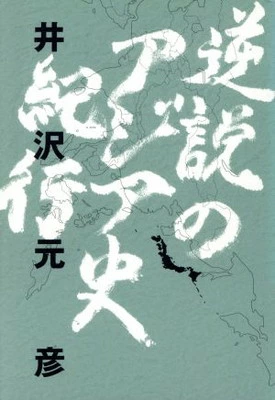 逆説の
アジア史
紀行
井沢元彦